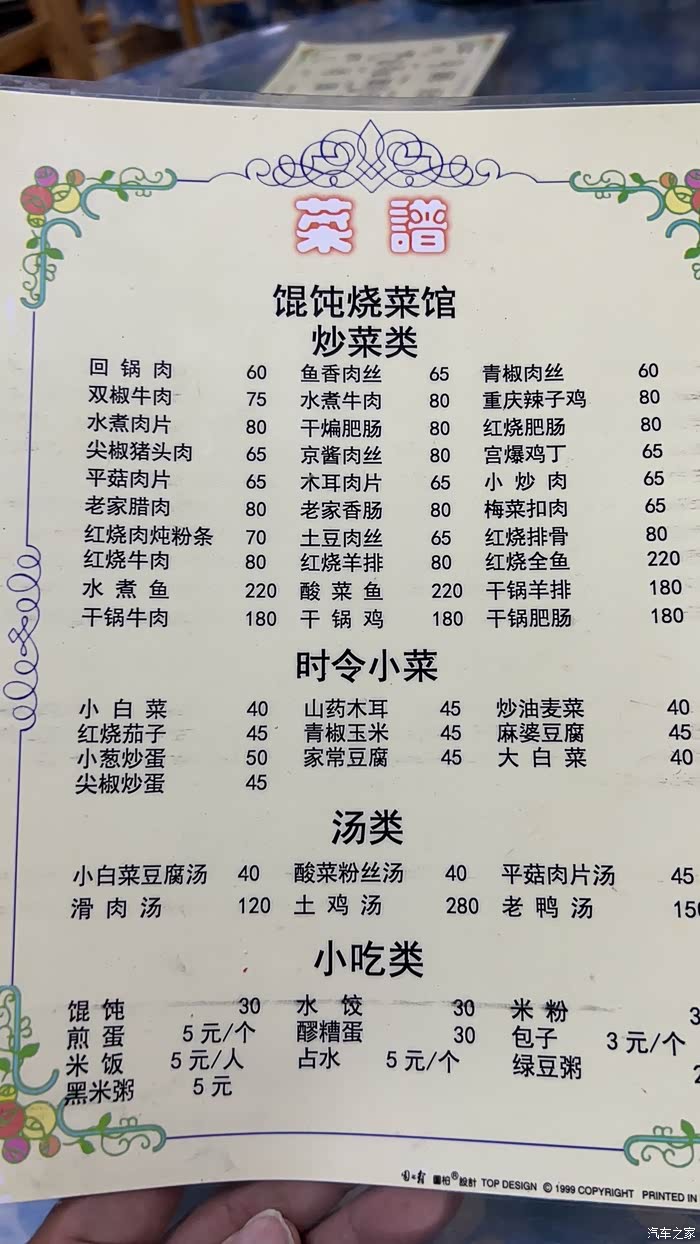 菜 譜
馄饨烧菜馆
炒菜类
回锅肉 60 鱼香肉丝 65 青椒肉丝 60
双椒牛肉 75 水煮牛肉 80 重庆辣子鸡 80
水煮肉片 80 干煸肥肠 80 红烧肥肠 80
尖椒猪头肉 65 京酱肉丝 80 宫爆鸡丁 65
平菇肉片 65 木耳肉片 65 小炒肉 65
老家腊肉 80 老家香肠 80 梅菜扣肉 65
红烧肉炖粉条 70 土豆肉丝 65 红烧排骨 80
红烧牛肉 80 红烧羊排 80 红烧全鱼 220
水煮鱼 220 酸菜鱼 220 干锅羊排 180
干锅牛肉 180 干锅鸡 180 干锅肥肠 180
时令小菜
小白菜 40 山药木耳 45 炒油麦菜 40
红烧茄子 45 青椒玉米 45 麻婆豆腐 45
小葱炒蛋 50 家常豆腐 45 大白菜 40
尖椒炒蛋 45
汤类
小白菜豆腐汤 40 酸菜粉丝汤 40 平菇肉片汤 45
滑肉汤 120 土鸡汤 280 老鸭汤 150
小吃类
馄饨 30 水饺 30 米粉 3
煎蛋 5元/个 醪糟蛋 30 包子 3元/个
米饭 5元/人 占水 5元/个 绿豆粥
黑米粥 5元
圖柏®設計 TOP DESIGN © 1999 COPYRIGHT PRINTED IN
汽车之家